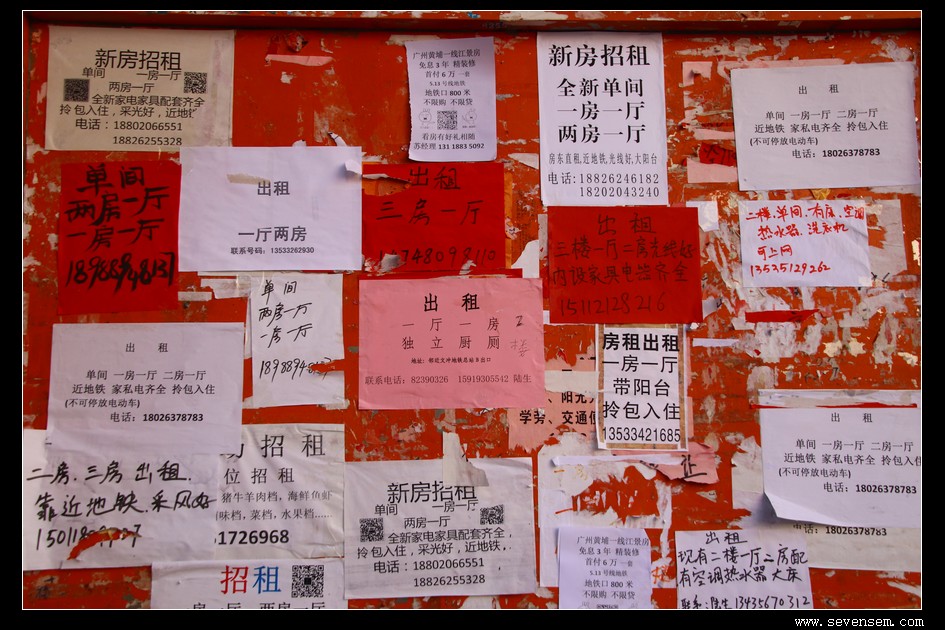 新房招租
单间 一房一厅
两房一厅
全新家电家具配套齐全
拎包入住，采光好，近地铁
电话：18802066551
18826255328
广州黄埔一线江景房
免息3年 精装修
首付6万 一套
5.13号线地铁
地铁口800米
不限购 不限贷
看房有好礼相随
苏经理 131 1883 5092
新房招租
全新单间
一房一厅
两房一厅
房东直租,近地铁,光线好,大阳台
电话:18826246182
18202043240
出 租
单间 一房一厅 二房一厅
近地铁 家私电齐全 拎包入住
(不可停放电动车)
电话：18026378783
单间
两房一厅
一房一厅
18988948137
出租
一厅两房
联系号码：13533262930
出租
三房一厅
出 租
三楼一厅二房光线好
内设家具电器齐全
15112128216
二楼.单间.有床.空调
热水器.洗衣机
可上网
13525129262
单间
两房一厅
一房一厅
出 租
一厅一房 2楼
独立厨厕
地址：邻近文冲地铁总站B出口
联系电话：82390326 15919305542 陆生
房租出租
一房一厅
带阳台
拎包入住
13533421685
阳光
学劳、交通便
出 租
单间 一房一厅 二房一厅
近地铁 家私电齐全 拎包入住
(不可停放电动车)
电话：18026378783
出 租
单间 一房一厅 二房一厅
近地铁 家私电齐全 拎包入住
(不可停放电动车)
电话：18026378783
电话：18026378783
二房.三房出租.
靠近地铁.采风好
招 租
位招租
猪牛羊肉档，海鲜鱼虾
味档，菜档，水果档……
1726968
新房招租
单间 一房一厅
两房一厅
全新家电家具配套齐全，
拎包入住，采光好，近地铁，
电话：18802066551
18826255328
招租
房一厅 一房一厅
广州黄埔一线江景房
免息3年 精装修
首付6万 一套
5.13号线地铁
地铁口800米
不限购 不限贷
出租
现有二楼一厅二房配
有空调热水器大床
联系:陆生13435670312
www.sevensem.com